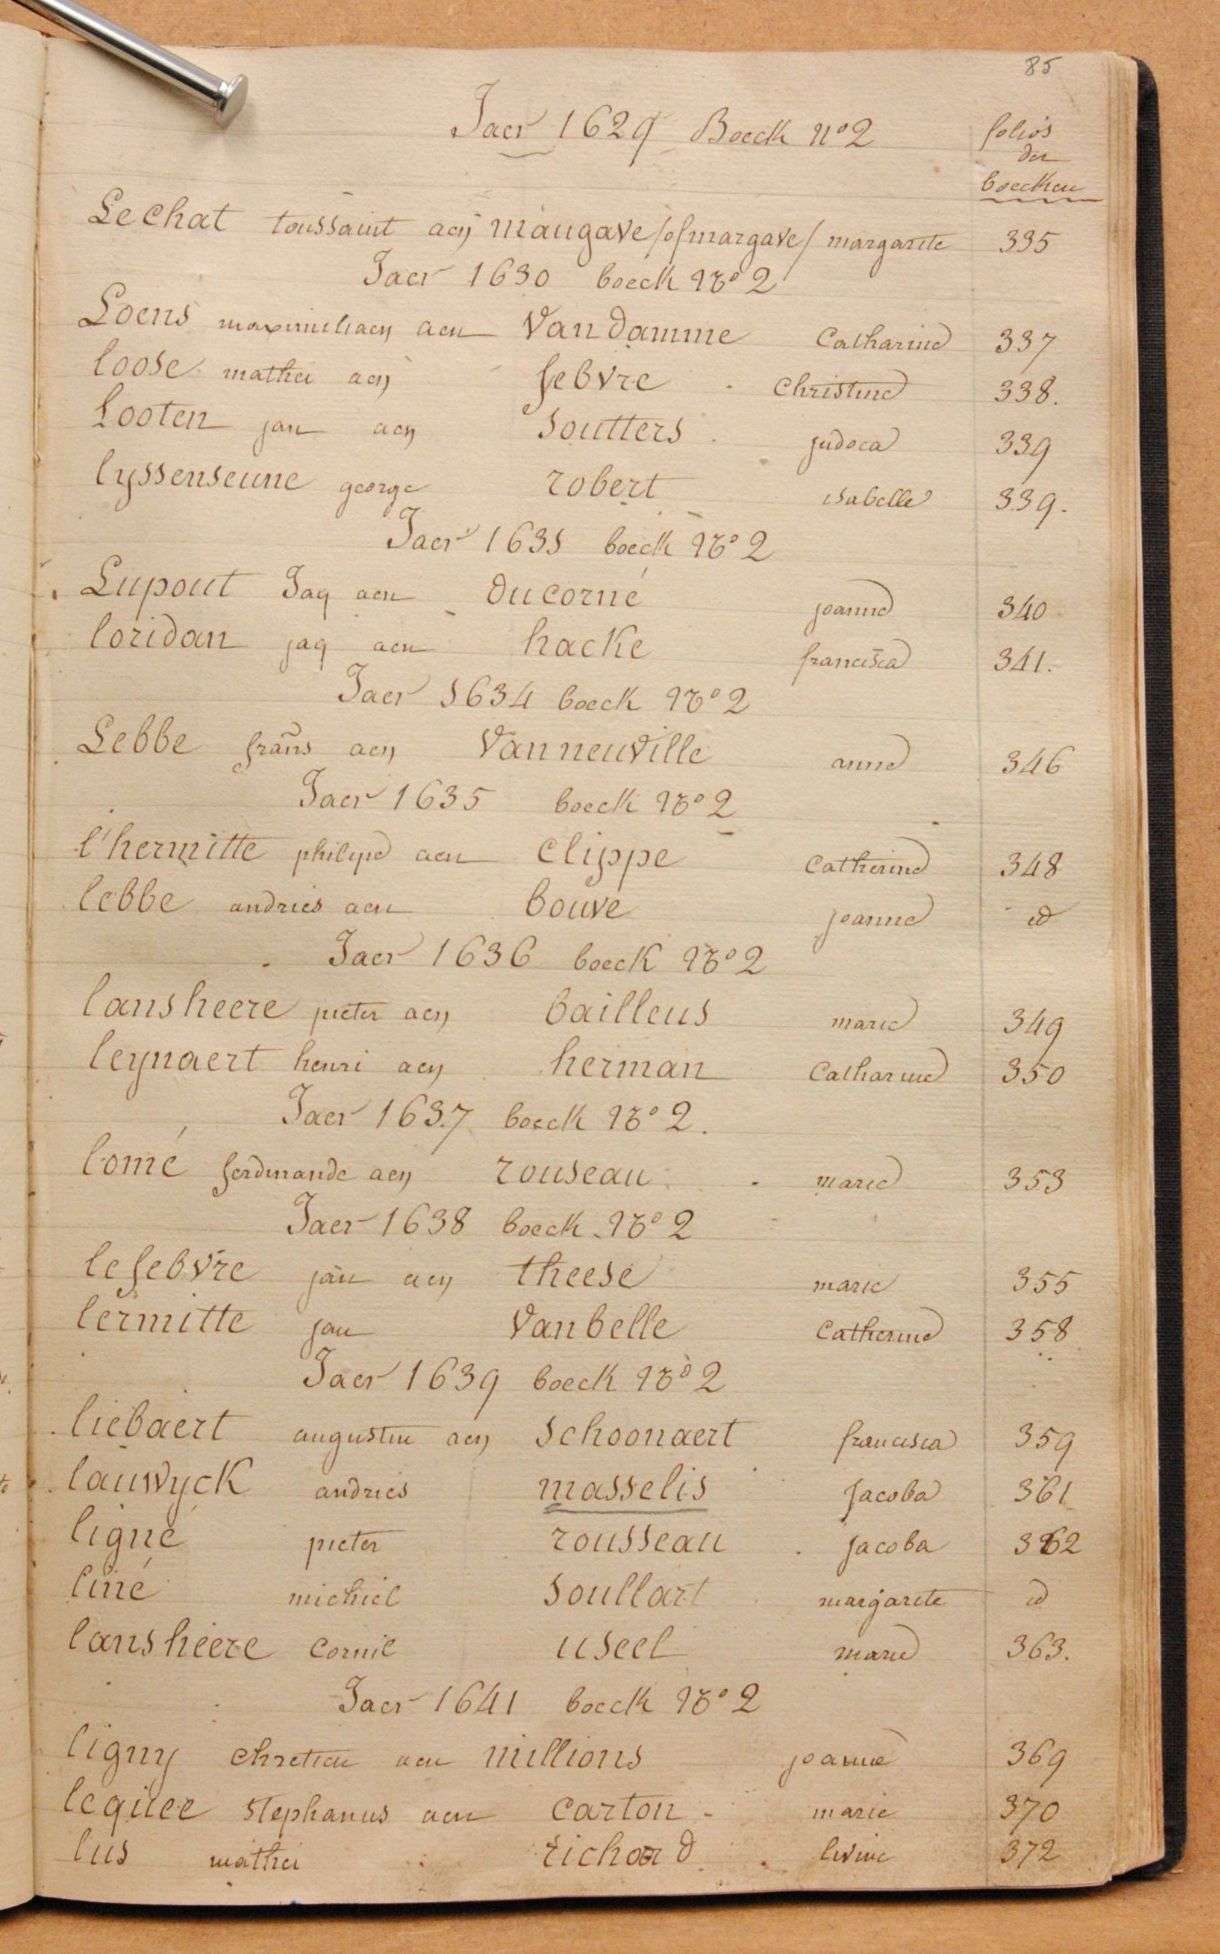 85
Jaer 1629 Boeck no 2
folio's
der
boecken
Lechat toussaint aen maugave /of margave/ margarite 335
Jaer 1630 boeck No 2
Loens maximiliaen aen Van Damme Catharine 337
loose mathei aen febvre christine 338.
Looten jan aen soutters judoca 339
lyssenseune george robert isabelle 339.
Jaer 1631 boeck No 2
Lupout Jaq aen ducorné joanne 340
loridan jaq aen hacke francisca 341.
Jaer 1634 boeck No 2
Lebbe frans aen Vanneuville anne 346
Jaer 1635 boeck No 2
l'hermitte philipe aen clippe catherine 348
lebbe andries aen bouve joanne id
Jaer 1636 boeck No 2
lansheere pieter aen bailleus marie 349
leynaert henri aen herman Catharine 350
Jaer 1637 boeck No 2.
lomé ferdinande aen rouseau marie 353
Jaer 1638 boeck No 2
lefebvre jan aen theese marie 355
lermitte jan Vanbelle catherine 358
Jaer 1639 boeck No 2
liebaert augustin aen schoonaert francisca 359
lauwyck andries masselis Jacoba 361
ligné pieter rousseau Jacoba 362
liné michiel soullart margarete id
lansheere cornil useel marie 363.
Jaer 1641 boeck No 2
ligny chretien aen millions joanne 369
lequiee stephanus aen carton marie 370
lus mathei richard livine 372